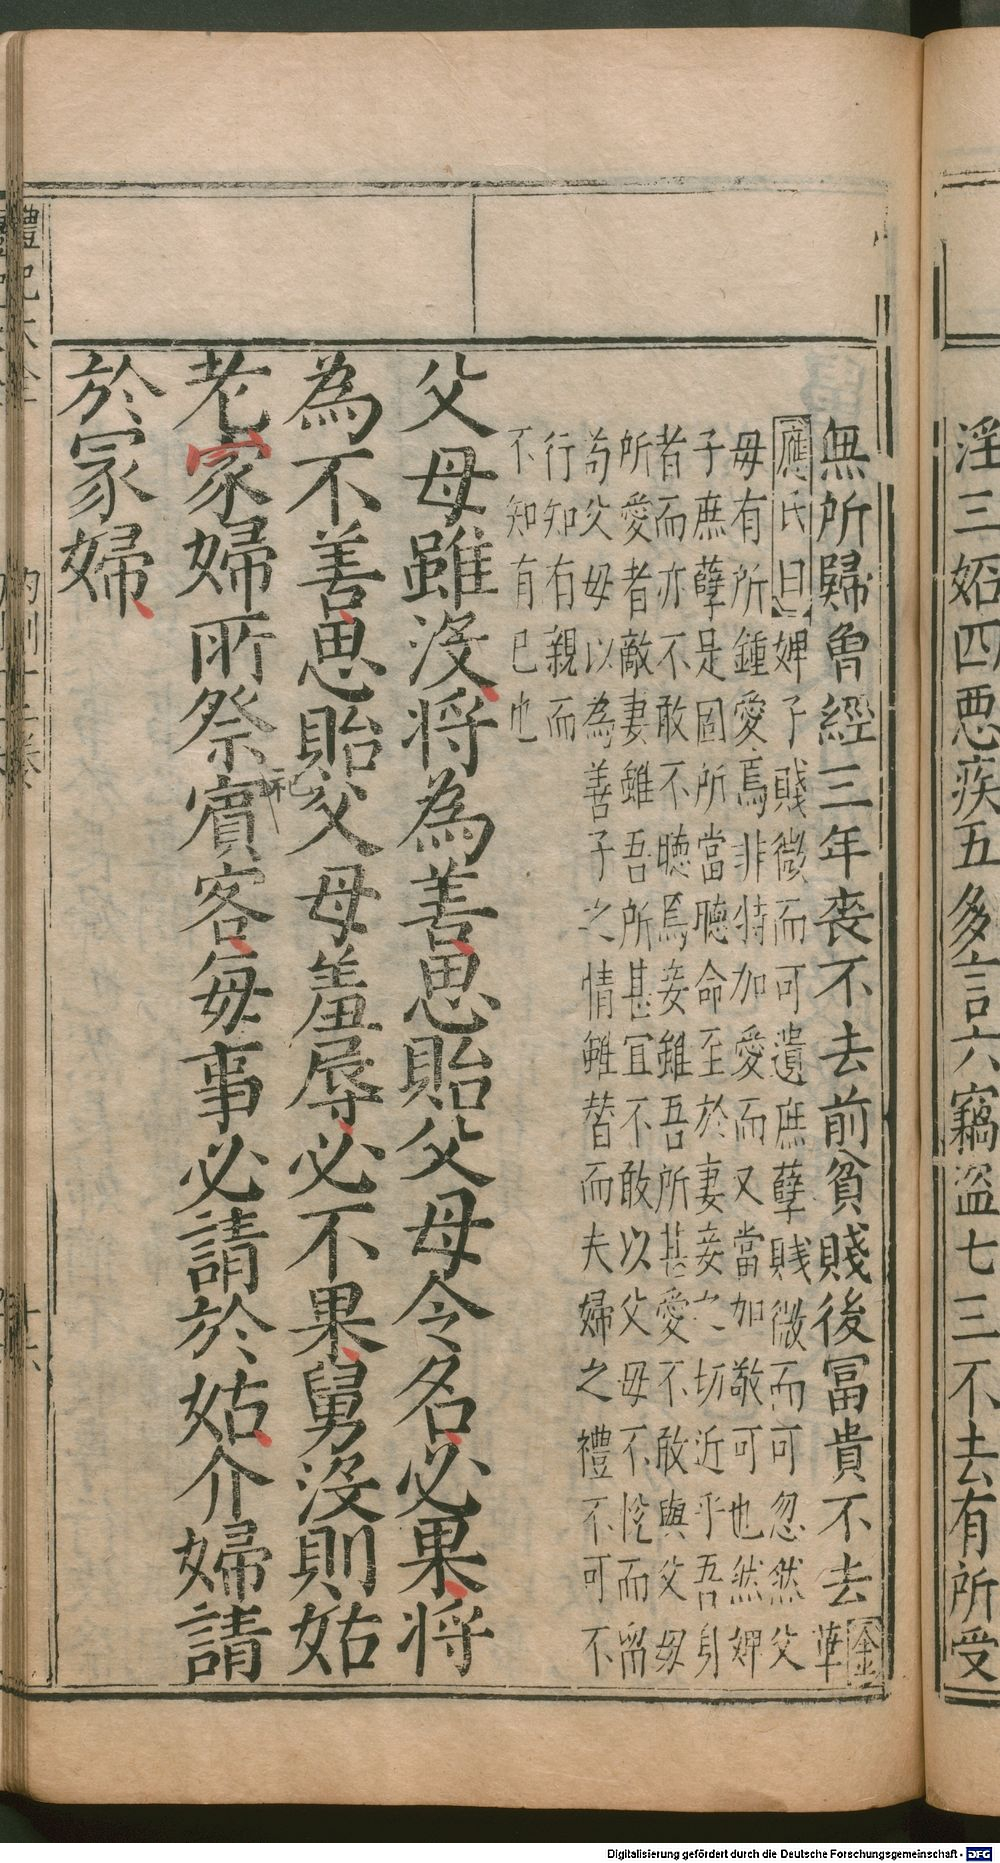 淫三妬四惡疾五多言六竊盜七三不去有所受
無所歸曾經三年喪不去前貧賤後冨貴不去 金華
應氏曰婢子賤微而可遺庶孽賤微而可忽然父
母有所鍾愛焉非特加愛而又當加敬可也然婢
子庶孽是固所當聴命至於妻妾之切近乎吾身
者而亦不敢不聴焉妾雖吾所甚愛不敢與父母
所愛者敵妻雖吾所甚宜不敢以父母不恱而留
苟父母以為善子之情雖替而夫婦之禮不可不
行知有親而
不知有已也
父母雖没将為善思貽父母令名必果将
為不善思貽父母羞辱必不果舅没則姑
老冢婦所祭賔客每事必請於姑介婦請
祀
於冢婦
Digitalisierung gefördert durch die Deutsche Forschungsgemeinschaft - DFG